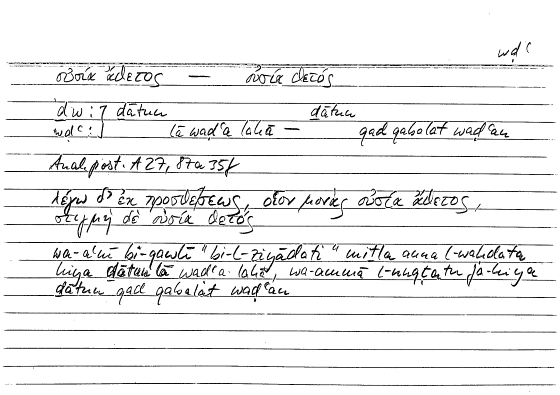 wḍʿ
οὐσία ἄθετος — οὐσία θετός
ḏw : ] ḏātun ḏātun
wḍʿ : ] lā waḍʿa lahā — qad qabilat waḍʿan
Anal. post. A 27, 87a 35f
λέγω δ' ἐκ προσθέσεως, οἷον μονὰς οὐσία ἄθετος,
στιγμὴ δὲ οὐσία θετός
wa-aʿnī bi-qawlī "bi-l-ziyādati" miṯla anna l-waḥdata
hiya ḏātun lā waḍʿa lahā, wa-ammā l-nuqṭatu fa-hiya
ḏātun qad qabilat waḍʿan